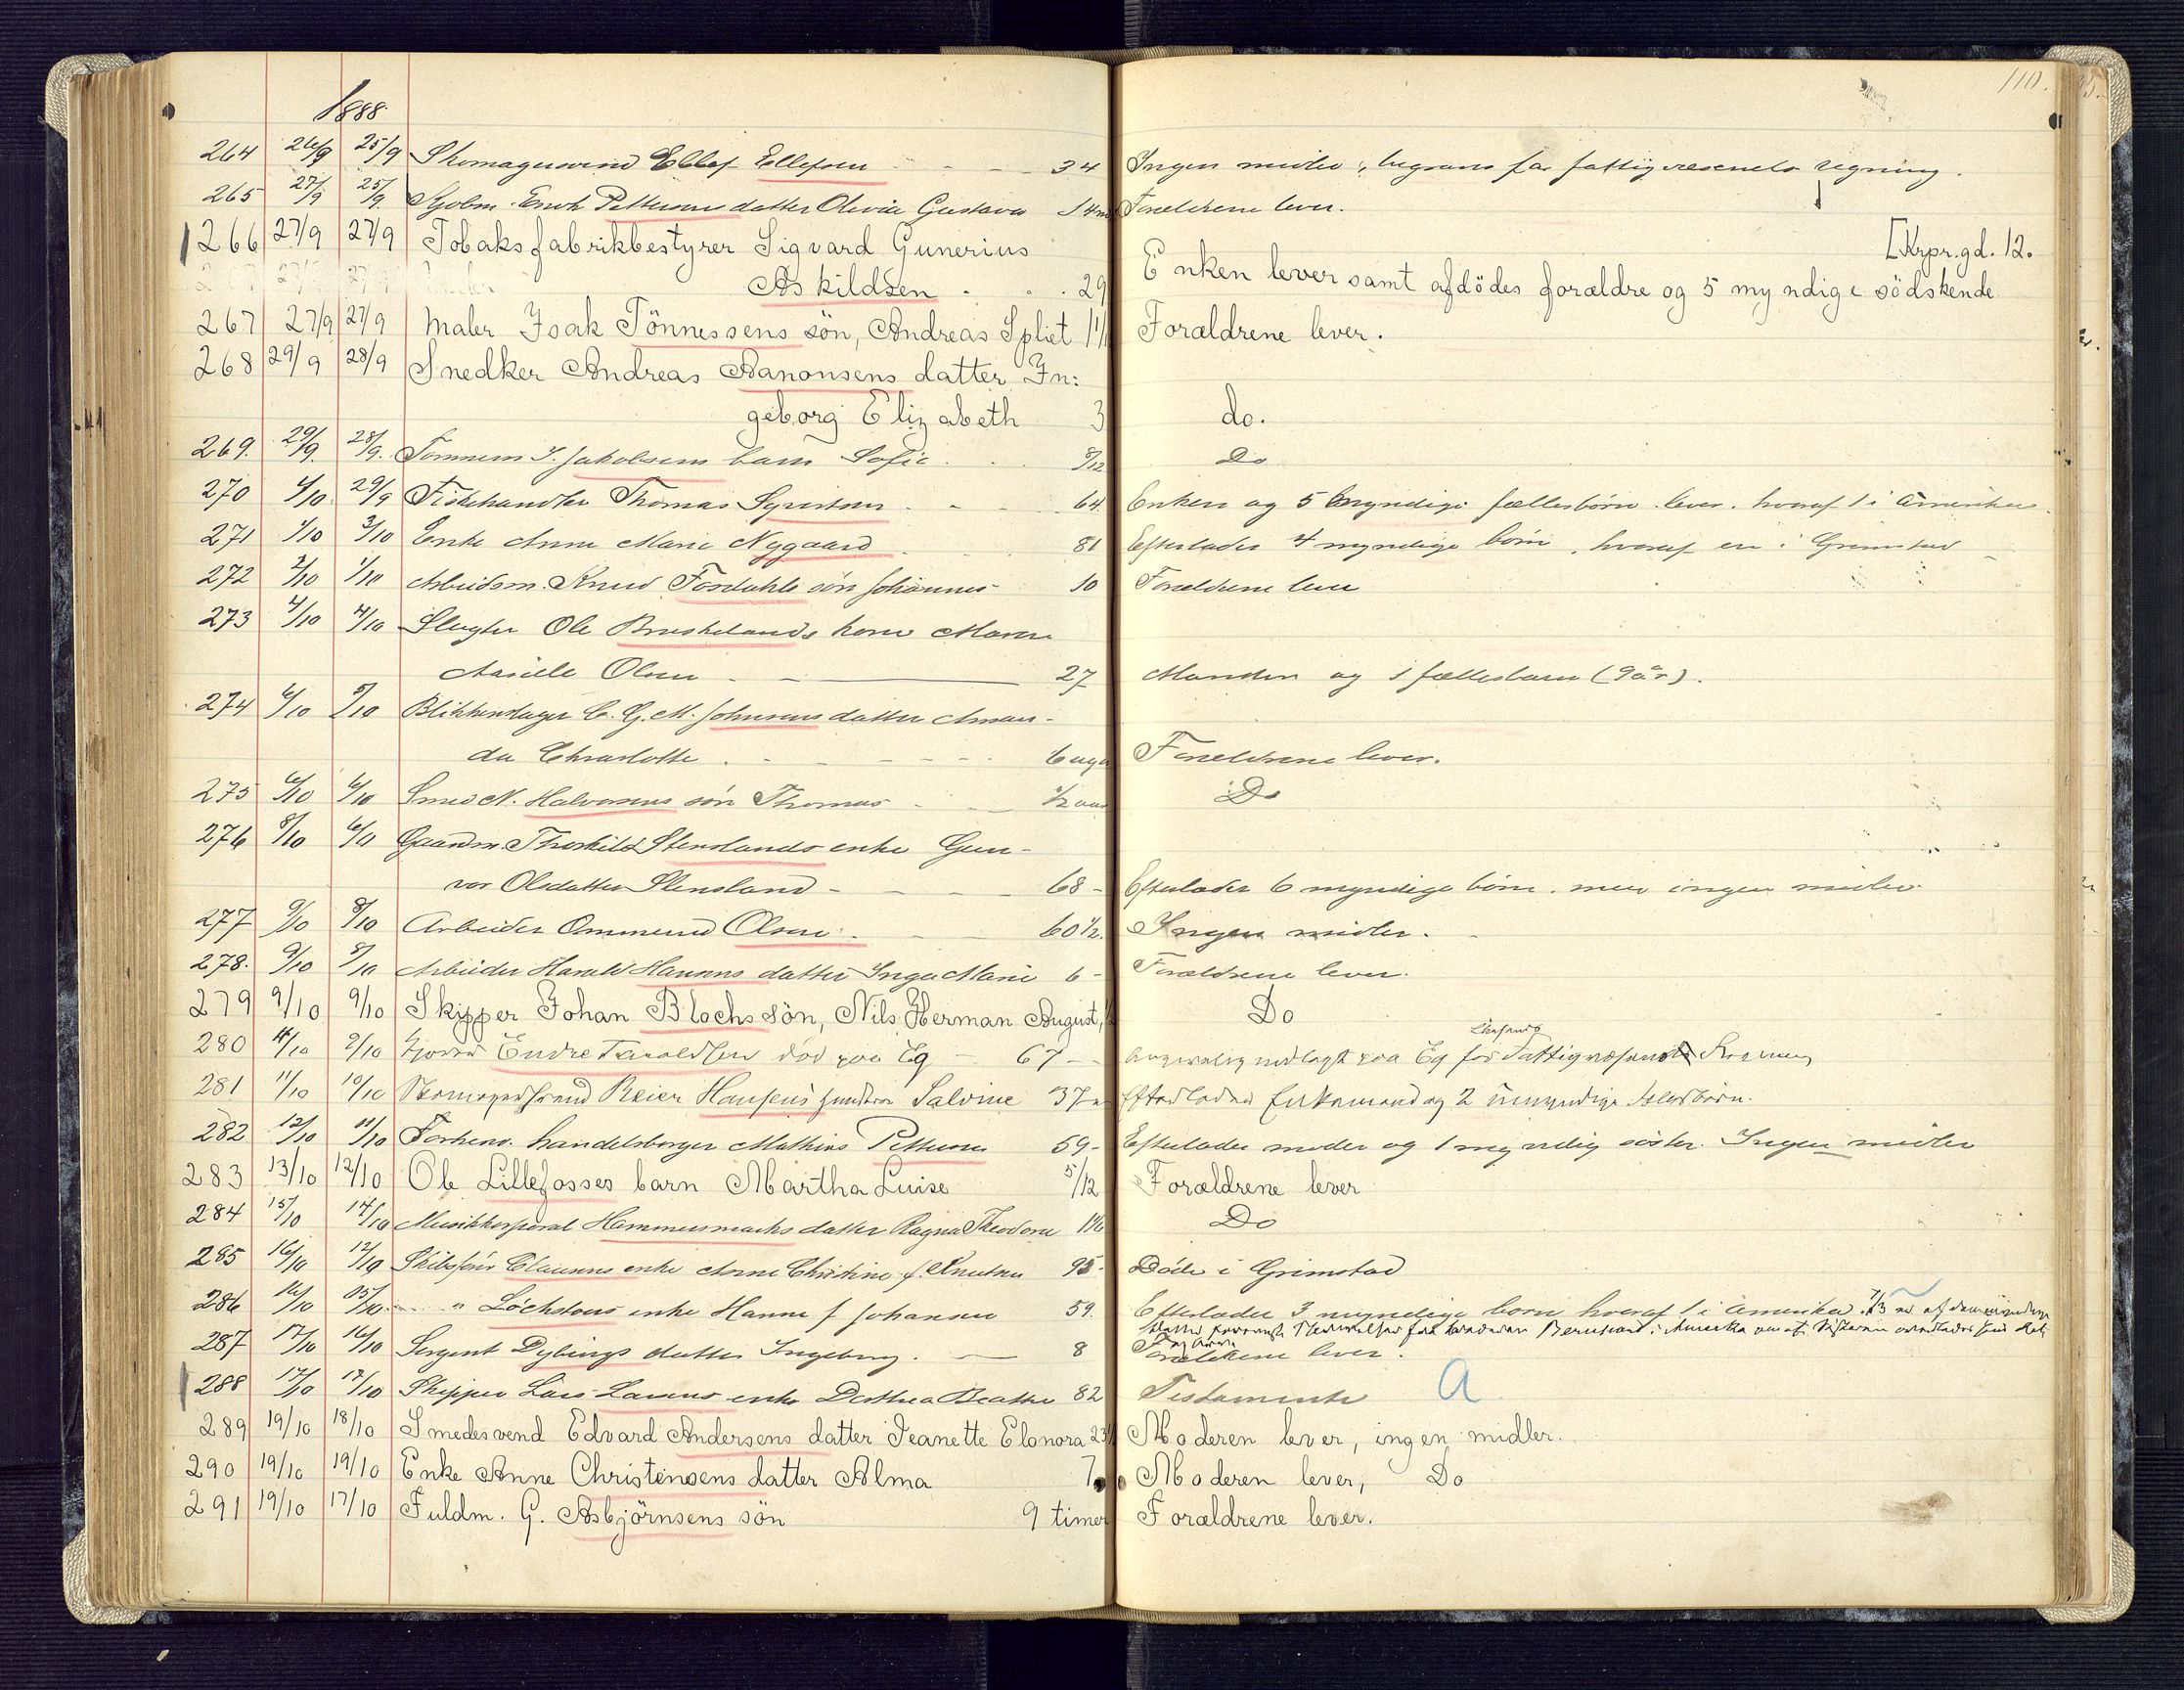 110.
1888
264 26/9 25/9 Skomagersvend Ellef Ellefsen - - 34 Ingen midler, begraves for fattigvæsenets regning.
265 27/9 25/9 Sjøm. Enok Pettersens datter Olivia Gustava 14 Forældrene lever.
266 27/9 27/9 Tobaksfabrikbestyrer Sigvard Gunerius [Krpr.gd. 12.
Askildsen . . . 29 Enken lever samt afdödes forældre og 5 myndige södskende
267 27/9 27/9 Maler Isak Tönnessens sön, Andreas Spliet Forældrene lever.
268 29/9 28/9 Snedker Andreas Aanonsens datter In:
geborg Elizabeth 3 do.
269. 29/9. 28/9. Tømmerm J. Jakobsens barn Sofie . . . 8/12 Do
270 1/10 29/9 Fiskehandler Thomas Syvertsen - - - 64 Enken og 5 myndige fællesbørn lever, hvoraf 1 i Amerika.
271 1/10 3/10 Enke Anne Marie Nygaard . . 81 Efterlader 4 myndige børn, hvoraf en i Grimstad
272 2/10 1/10 Arbeidsm. Knud Fosdahls søn Johannes 10 Forældrene lever
273 4/10 4/10 Slagter Ole Bruskelands kone Maren
Aasille Olsen - - 27 Manden og 1 fællesbarn (9 år).
274 6/10 5/10 Blikkenslager C. G. M. Johnsens datter Aman-
da Charlotte . - - - - 6 uger Forældrene lever.
275 6/10 6/10 Smed N. Halvorsens søn Thomas - - 1/2 aar Do
276 8/10 6/10 Gaardm. Thorkild Stenslands enke Gun-
vor Olsdatter Stensland - - - 68 - Efterlader 6 myndige børn, men ingen midler.
277 9/10 8/10 Arbeider Ommund Olsen . - - 60 1/2. Ingen midler.
278. 9/10 8/10 Arbeider Harald Hansens datter Inga Marie 6 - Forældrene lever.
279 9/10 9/10 Skipper Johan Blochs sön, Nils Herman August, Do
280 11/10 9/10 Endre Taraldsen død paa Eg - 67 - indlagt paa Eg for Fattigvæsenets Regning
281 11/10 10/10 Skomagersvend Reier Hansens hustru Salvine 37 Efterlader Enkemand og 2 umyndige fælesbørn.
282 12/10 11/10 Forhenv. handelsborger Mathias Pettersen 59 - Efterlader moder og 1 myndig søster. Ingen midler
283 13/10 12/10 Ole Lillefosses barn Martha Luise 5/12 Forældrene lever
284 15/10 14/10 Musikkorporal Hammersmarks datter Ragna Theodora Do
285 16/10 12/10 Skibsfør Clausens enke Anne Christine f. Knutsen 95 - Døde i Grimstad
286 16/10 15/10 " Löchstøers enke Hanne f Johansen 59. Efterlader 3 myndige børn hvoraf 1 i Amerika.
287 17/10 16/10 Sergent Dybings datter Ingeborg. - 8 Forældrene lever.
288 17/10 17/10 Skipper Lars Larsens enke Dorthea Beathe 82 Testamente A
289 19/10 18/10 Smedesvend Edvard Andersens datter Jeanette Elonora 23 Moderen lever, ingen midler.
290 19/10 19/10 Enke Anne Christensens datter Alma 7 Moderen lever, Do
291 19/10 17/10 Fuldm. G. Asbjörnsens sön 9 timer Forældrene lever.